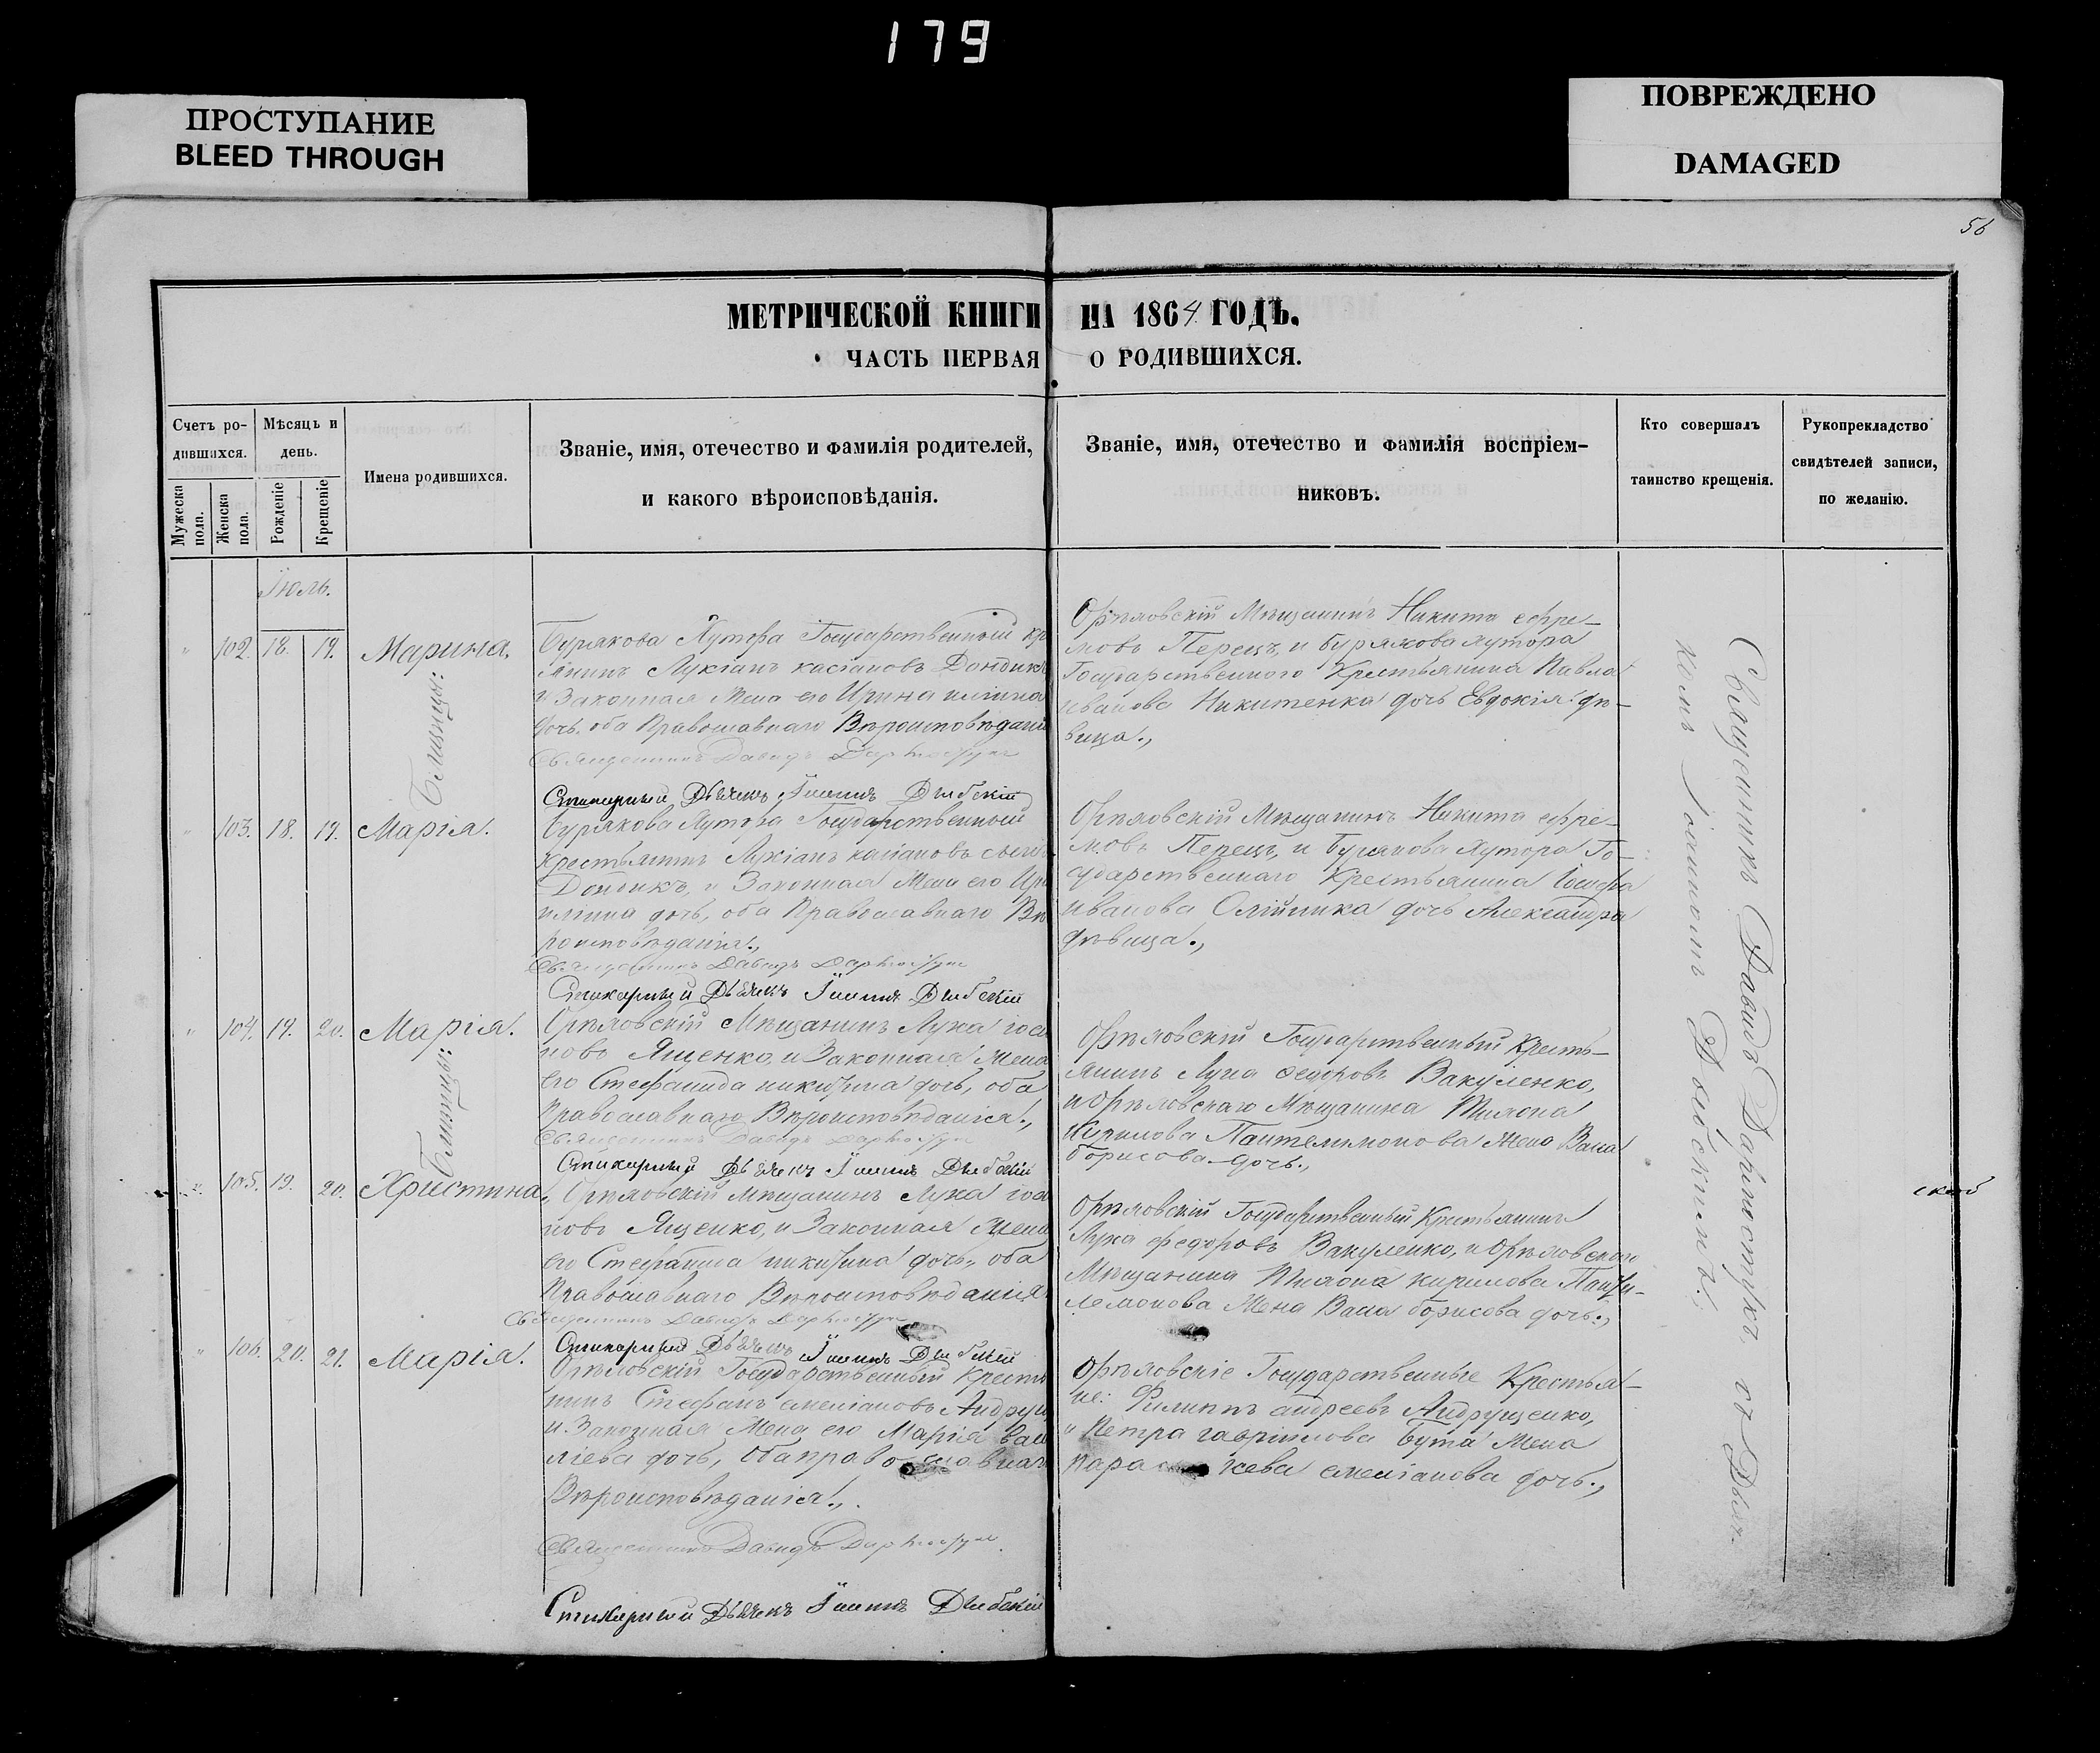 179
ПРОСТУПАНИЕ
BLEED THROUGH
ПОВРЕЖДЕНО
DAMAGED
56
МЕТРИЧЕСКОЙ КНИГИ НА 1864 ГОДЪ.
ЧАСТЬ ПЕРВАЯ О РОДИВШИХСЯ.
Счетъ ро-
дившихся.
Мужеска пола.
Женска пола.
Мѣсяцъ и
день.
Рожденіе
Крещеніе
Имена родившихся.
Званіе, имя, отечество и фамилія родителей,
и какого вѣроисповѣданія.
Званіе, имя, отечество и фамилія воспріем-
никовъ.
Кто совершалъ
таинство крещенія.
Рукоприкладство
свидѣтелей записи,
по желанію.
Іюль.
102. 18. 19. Марина.
Близнцы:
Бурякова Хутора Государственный кр
янинъ Лукіанъ касіановъ Дондик
и Законная Жена его Ирина
дочь. оба Православнаго Вѣроисповѣдані
Священникъ Давидъ
Стихарный Дьячекъ Іоаннъ
Орѣловскій Мѣщанинъ Никита ефре-
мовъ Перецъ, и бурякова хутора
Государственного Крестьянина Павла
иванова Никитенка дочь Евдокія дѣ-
вица.,
103. 18. 19. Марія.
Бурякова Хутора Государственный
крестьянинъ Лукіанъ касіановъ сынъ
Дондикъ, и Законная Жена его Ири
дочь, оба Православнаго Вѣ
роисповѣданія.,
Священникъ Давидъ
Стихарный Дьячекъ Іоаннъ
Орѣловскій Мѣщанинъ Никита ефре-
мовъ Перецъ, и Бурякова Хутора Го-
сударственнаго Крестьянина Іосифа
иванова Олійника дочь Александра
дѣвица.,
104. 19. 20. Марія.
Близнцы:
Орѣловскій Мѣщанинъ Лука іоа
новъ Ященко, и Законная Жена
его Стефанида никитина дочь, оба
Православнаго Вѣроисповѣданія.,
Священникъ Давидъ
Стихарный Дьячекъ Іоаннъ
Орѣловскій Государственный Кресть-
янинъ Лука федоровъ Вакуленко,
и Орѣловскаго Мѣщанина
Кирилова Пантелимонова Жена Васа
борисова дочь.,
105. 19. 20. Христина.
Орѣловскій мѣщанинъ Лука іоа
новъ Ященко, и Законная Жена
его Стефанида никитина дочь, оба
Православнаго Вѣроисповѣданія
Священникъ Давидъ
Стихарный Дьячекъ Іоаннъ
Орѣловскій Государственный Крестьянинъ
Лука федоровъ Вакуленко, и Орѣловского
Мѣщанина кирилова
Жена Васа борисова дочь.,
106. 20. 21. Марія.
Орѣловскій Государственный Крестья
нинъ Стефанъ емеліановъ Андрущ
и Законная Жена его Марія васи
ліева дочь, оба православнаго
Вѣроисповѣданія.,
Священникъ Давидъ
Стихарный Дьячекъ Іоаннъ
Орѣловскіе Государственные Крестья-
не: Филиппъ андреевъ Андрущенко,
и Петра гаврилова Бута Жена
емеліанова дочь.,
Священникъ Давидъ
Іоанномъ